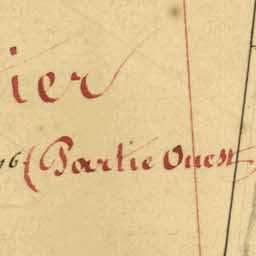 ier
6 (Partie Ouest